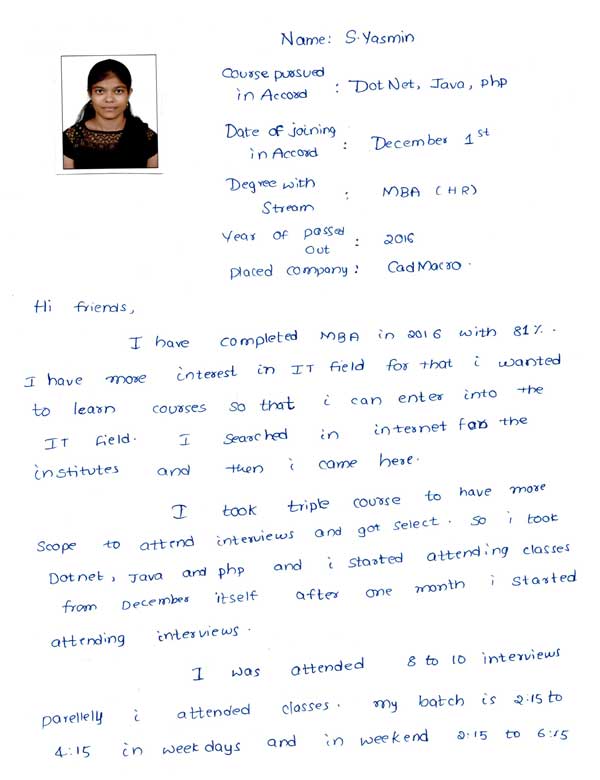 Name: S.Yasmin
Course pursued
in Accord : DotNet, Java, php
Date of joining
in Accord : December 1st
Degree with
Stream : MBA (HR)
Year of passed
Out : 2016
placed company : CadMacro.
Hi friends,
I have completed MBA in 2016 with 81%.
I have more interest in IT field for that i wanted
to learn courses so that i can enter into the
IT field. I searched in internet for the
institutes and then i came here.
I took triple course to have more
Scope to attend interviews and got select. so i took
Dotnet, Java and php and i started attending classes
from December itself after one month i started
attending interviews.
I was attended 8 to 10 interviews
parellely i attended classes. my batch is 2:15 to
4:15 in weekdays and in weekend 2:15 to 6:15